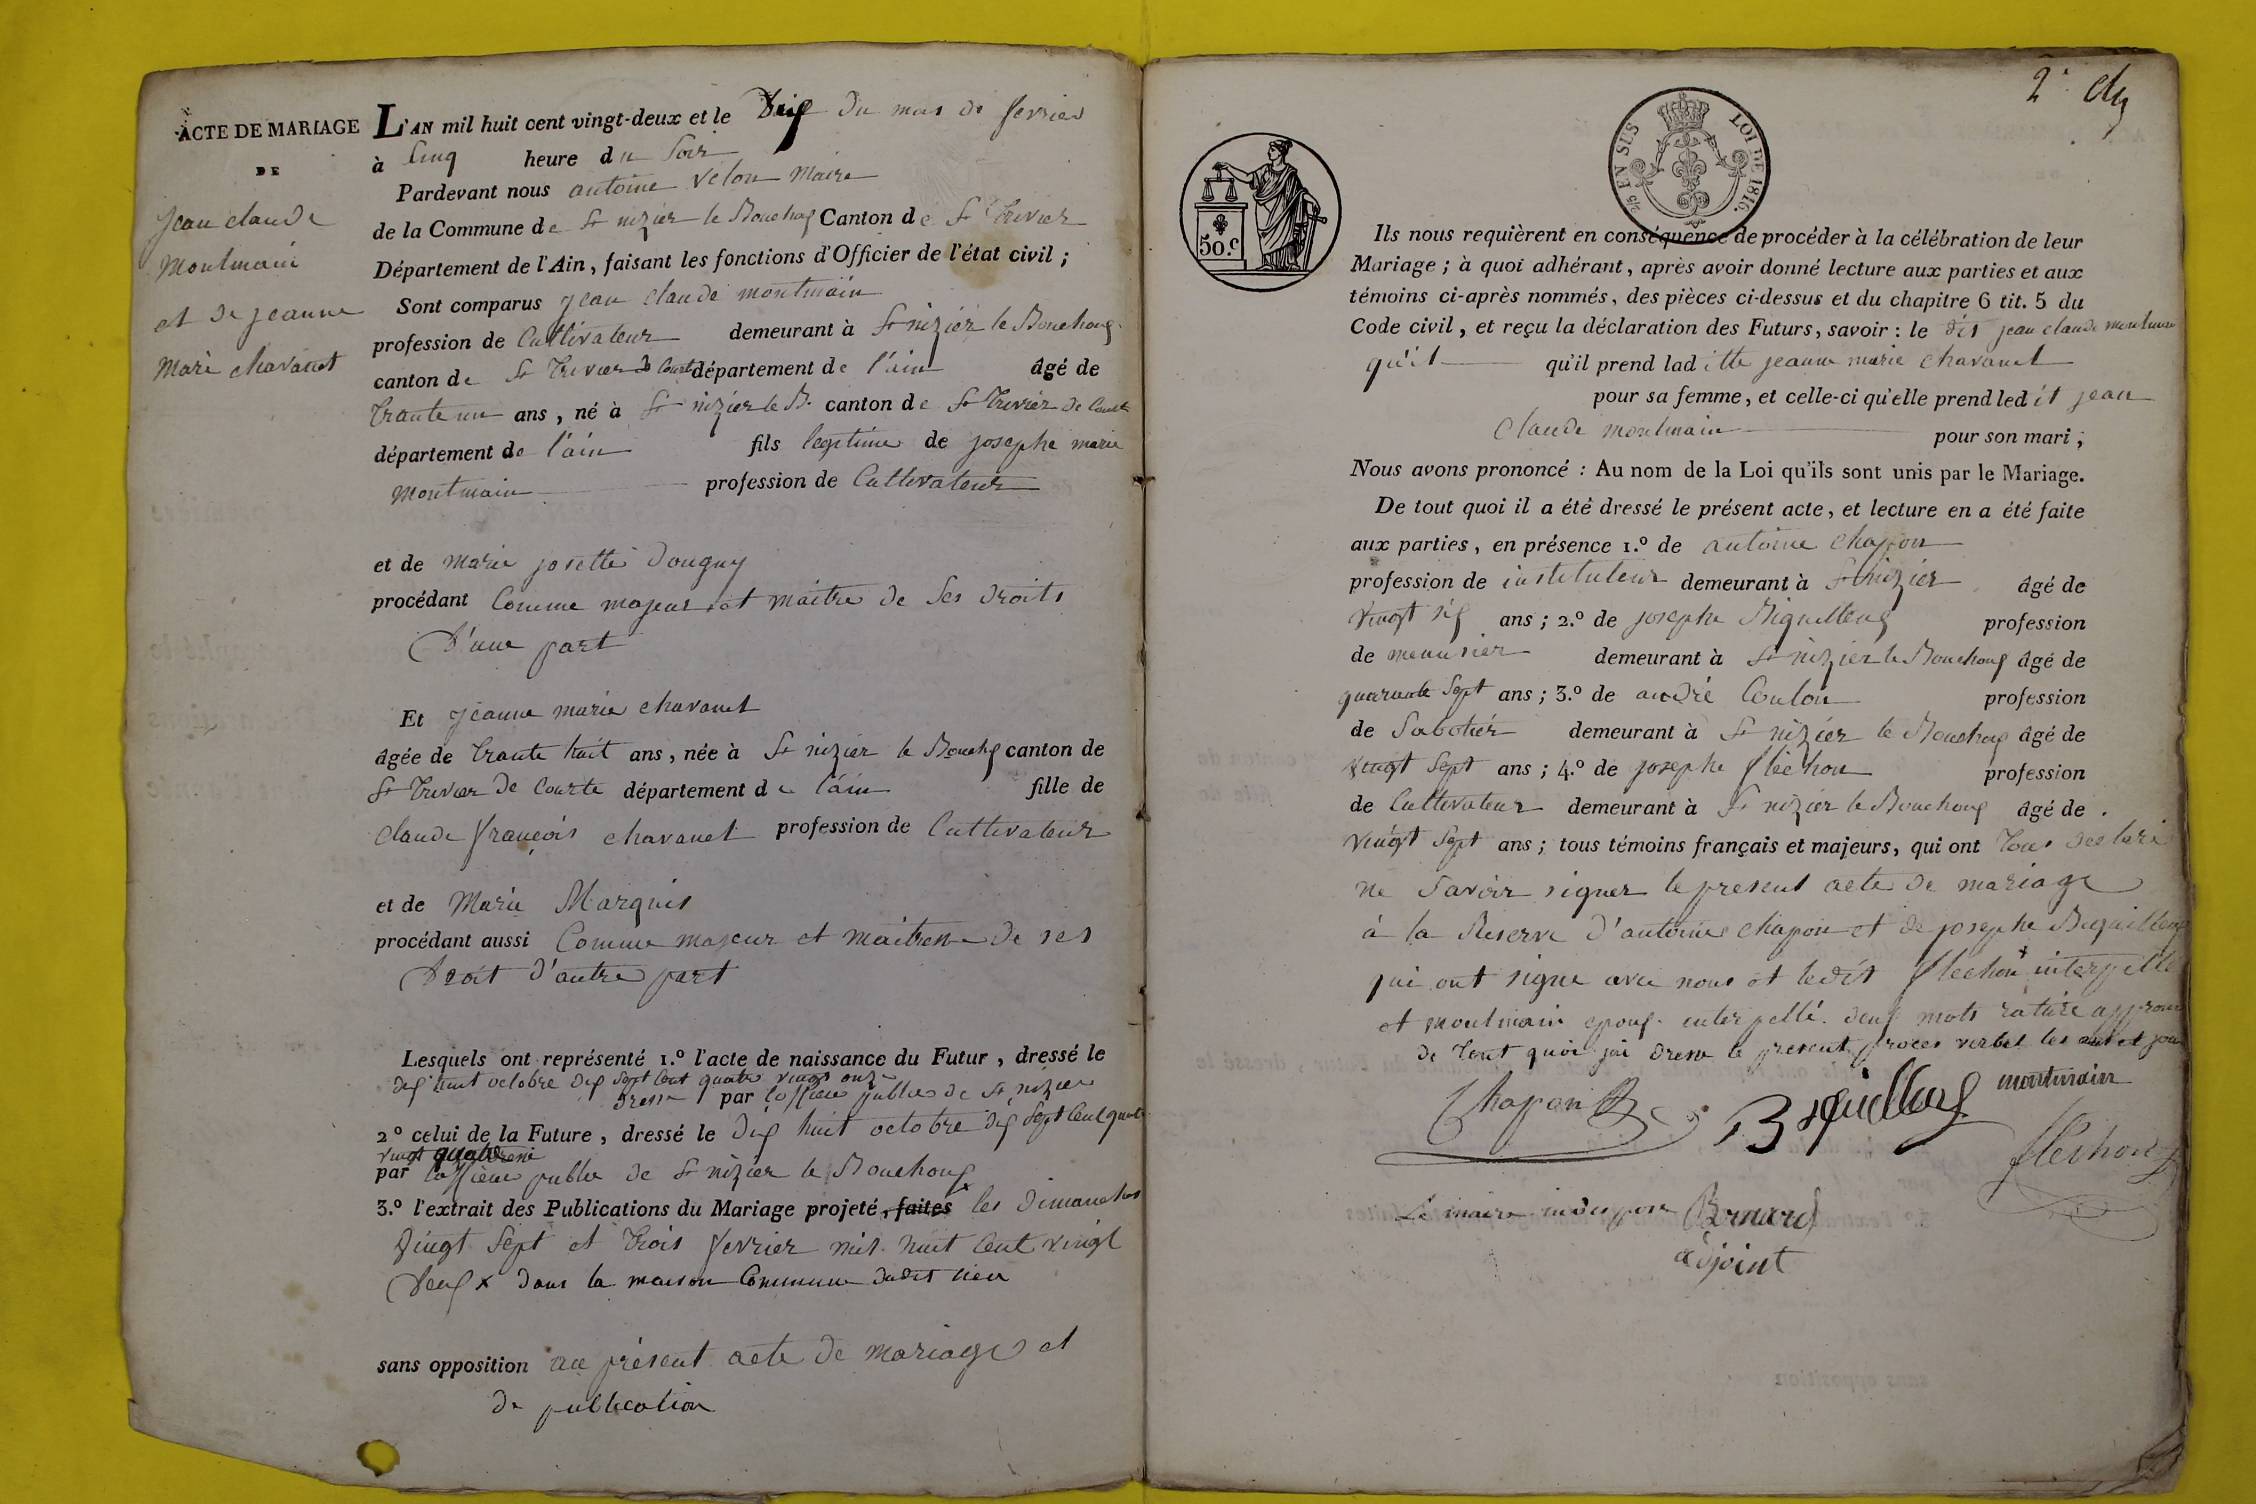 ACTE DE MARIAGE
DE
Jean claude
Montmain
et de jeanne
Marie chavanet
L'AN mil huit cent vingt-deux et le Dix du mois de fevrier
à Cinq heure du Soir
Pardevant nous antoine Velon Maire
de la Commune de St nizier le Bouchoux Canton de St Trivier
Département de l'Ain, faisant les fonctions d'Officier de l'état civil ;
Sont comparus jean claude montmain
profession de Cultivateur demeurant à St nizier le Bouchoux
canton de St Trivier d Courte département de l'ain âgé de
Trante un ans, né à St nizier le B. canton de St Trivier de Courte
département de l'ain fils legitime de josephe marie
Montmain profession de Cultivateur
et de Marie josette Dougny
procédant Comme majeur et maitre de Ses droits
D'une part
Et jeanne marie chavanet
âgée de Trante huit ans, née à St nizier le Bouchx canton de
St Trivier de Courte département de l'ain fille de
claude françois chavanet profession de Cultivateur
et de Marie Marquis
procédant aussi Comme majeur et maitresse de ses
Droit d'autre part
Lesquels ont représenté 1.º l'acte de naissance du Futur, dressé le
dix huit octobre dix sept Cent quatre vingt onze
Dressé par l'officier public de St nizier
2º celui de la Future, dressé le dix huit octobre dix Sept Cent quatre
vingt quatre
par l'officier public de St nizier le Bouchoux
3.º l'extrait des Publications du Mariage projeté, faites les Dimanches
Vingt Sept et Trois fevrier mil huit Cent vingt
Deux x dans la maison Commune dudit lieu
sans opposition au présent acte de mariage et
de publication
2e
50.c
2/5 EN SUS LOI DE 1816.
Ils nous requièrent en conséquence de procéder à la célébration de leur
Mariage ; à quoi adhérant, après avoir donné lecture aux parties et aux
témoins ci-après nommés, des pièces ci-dessus et du chapitre 6 tit. 5 du
Code civil, et reçu la déclaration des Futurs, savoir : le dit jean claude montmain
qu'il qu'il prend lad itte jeanne marie chavanet
pour sa femme, et celle-ci qu'elle prend led it jean
Claude montmain pour son mari ;
Nous avons prononcé : Au nom de la Loi qu'ils sont unis par le Mariage.
De tout quoi il a été dressé le présent acte, et lecture en a été faite
aux parties, en présence 1.º de antoine chapon
profession de instituteur demeurant à St nizier âgé de
Vingt six ans ; 2.º de josephe Biquilleux profession
de menusier demeurant à St nizier le Bouchoux âgé de
quarante Sept ans ; 3.º de andré Coulon profession
de Sabotier demeurant à St nizier le Bouchoux âgé de
vingt Sept ans ; 4.º de josephe flechon profession
de Cultivateur demeurant à St nizier le Bouchoux âgé de
Vingt Sept ans ; tous témoins français et majeurs, qui ont Tous declaré
ne Savoir signer le present acte de mariage
à la Reserve d'antoine chapon et de josephe Bequilleux
qui ont signe avec nous et ledit flechon interpellé
et montmain epoux interpellé. deux mots raturé approuvé
de Tout quoi jai Dressé le present proces verbal les an et jour
Chapon Bequilleux montmain
flechon
Le maire indisposé Bernard
adjoint